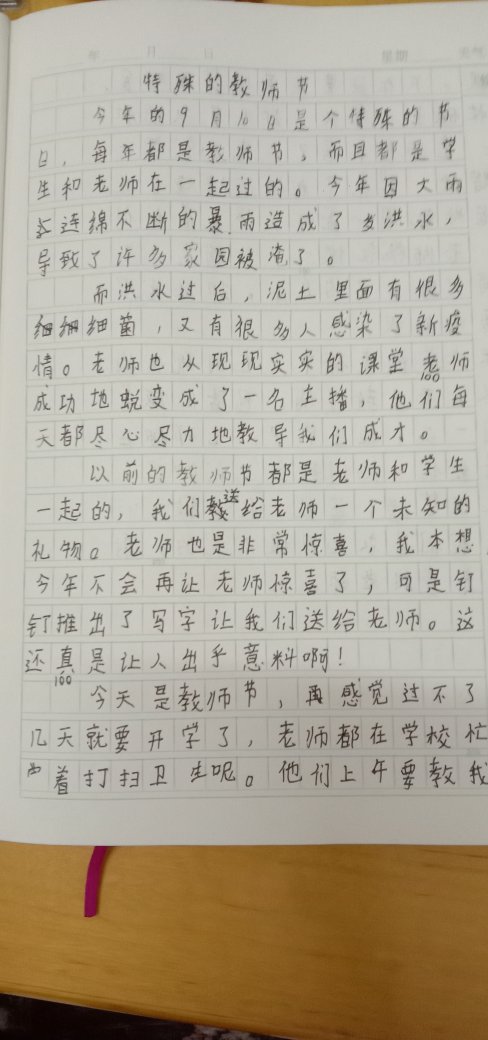 年 月 日 星期 天气
特殊的教师节
今年的9月10日是个特殊的节
日，每年都是教师节，而且都是学
生和老师在一起过的。今年因大雨
连绵不断的暴雨造成了发洪水，
导致了许多家园被淹了。
而洪水过后，泥土里面有很多
细细细菌，又有很多人感染了新疫
情。老师也从现现实实的课堂老师
成功地蜕变成了一名主播，他们每
天都尽心尽力地教导我们成才。
以前的教师节都是老师和学生
一起的，我们送给老师一个未知的
礼物。老师也是非常惊喜，我本想
今年不会再让老师惊喜了，可是钉
钉推出了写字让我们送给老师。这
还真是让人出乎意料啊！
100
今天是教师节，再感觉过不了
几天就要开学了，老师都在学校忙
着打扫卫生呢。他们上午要教我